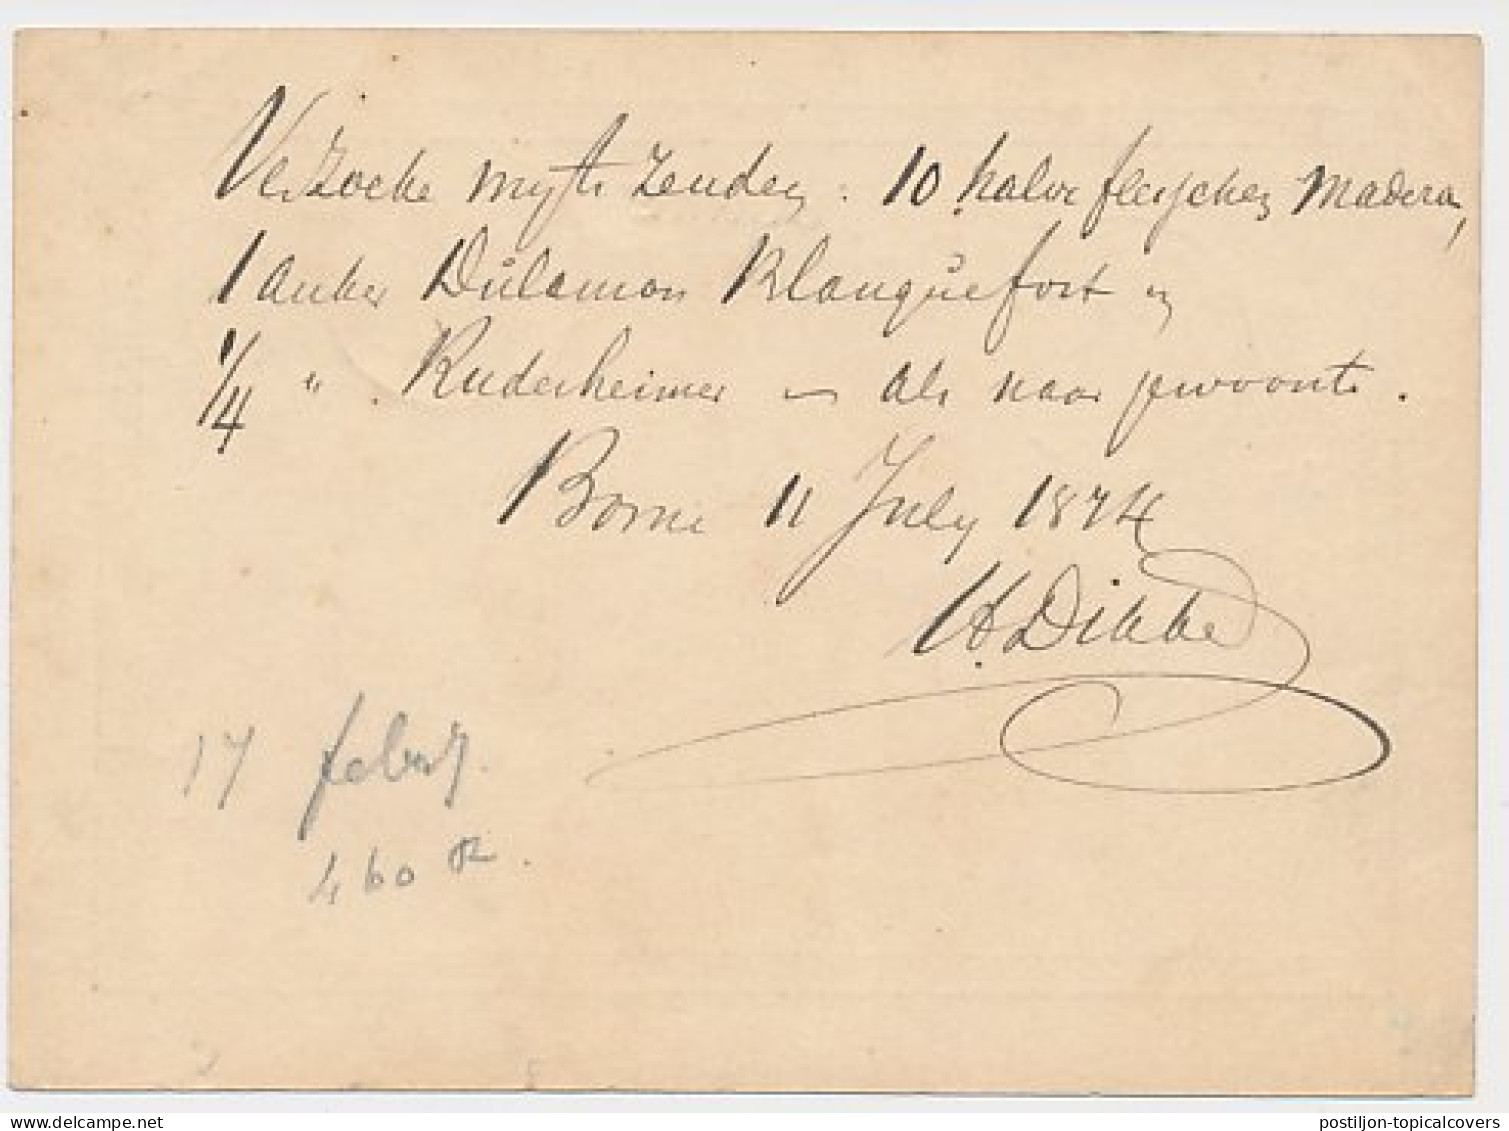 Verzoeke mij te zenden : 10 halve flesschen Madera,
1 anker Dulamon Blanquefort en
1/4 " Rudesheimer — als naar gewoonte.
Borne 11 July 1874
H. Dikke
17 febry.
460
www.delcampe.net
postiljon-topicalcovers